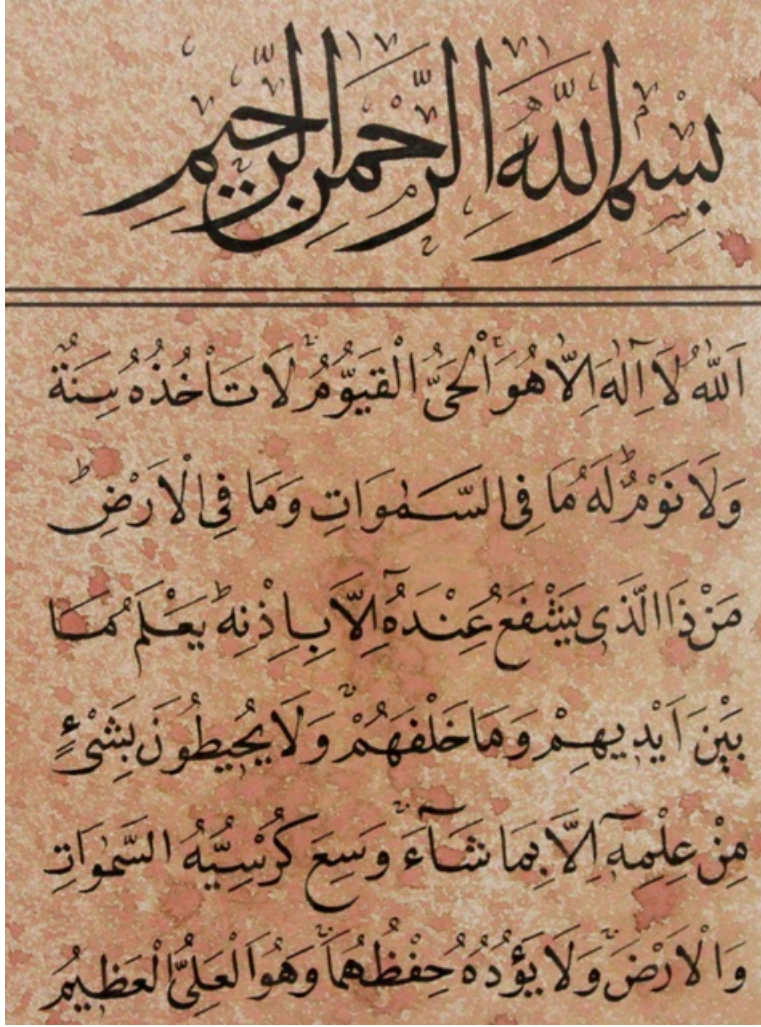 بِسْمِ اللّٰهِ الرَّحْمٰنِ الرَّحِيمِ
اَللّٰهُ لَا اِلٰهَ اِلَّا هُوَ اَلْحَىُّ الْقَيُّومُ ۚ لَا تَاْخُذُهُ سِنَةٌ
وَلَا نَوْمٌ ۜ لَهُ مَا فِى السَّمٰوَاتِ وَمَا فِى الْاَرْضِ ۜ
مَنْ ذَا الَّذٖى يَشْفَعُ عِنْدَهُٓ اِلَّا بِاِذْنِهٖ ۜ يَعْلَمُ مَا
بَيْنَ اَيْدٖيهِمْ وَمَا خَلْفَهُمْ ۚ وَلَا يُحٖيطُونَ بِشَىْءٍ
مِنْ عِلْمِهٖٓ اِلَّا بِمَا شَٓاءَ ۚ وَسِعَ كُرْسِيُّهُ السَّمٰوَاتِ
وَالْاَرْضَ ۚ وَلَا يَؤُدُهُ حِفْظُهُمَا ۚ وَهُوَ الْعَلِىُّ الْعَظٖيمُ